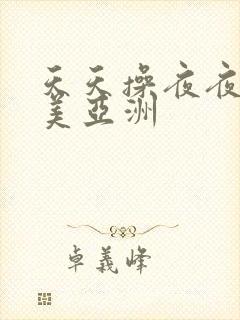 天天操夜夜
美亞洲
卓義峰